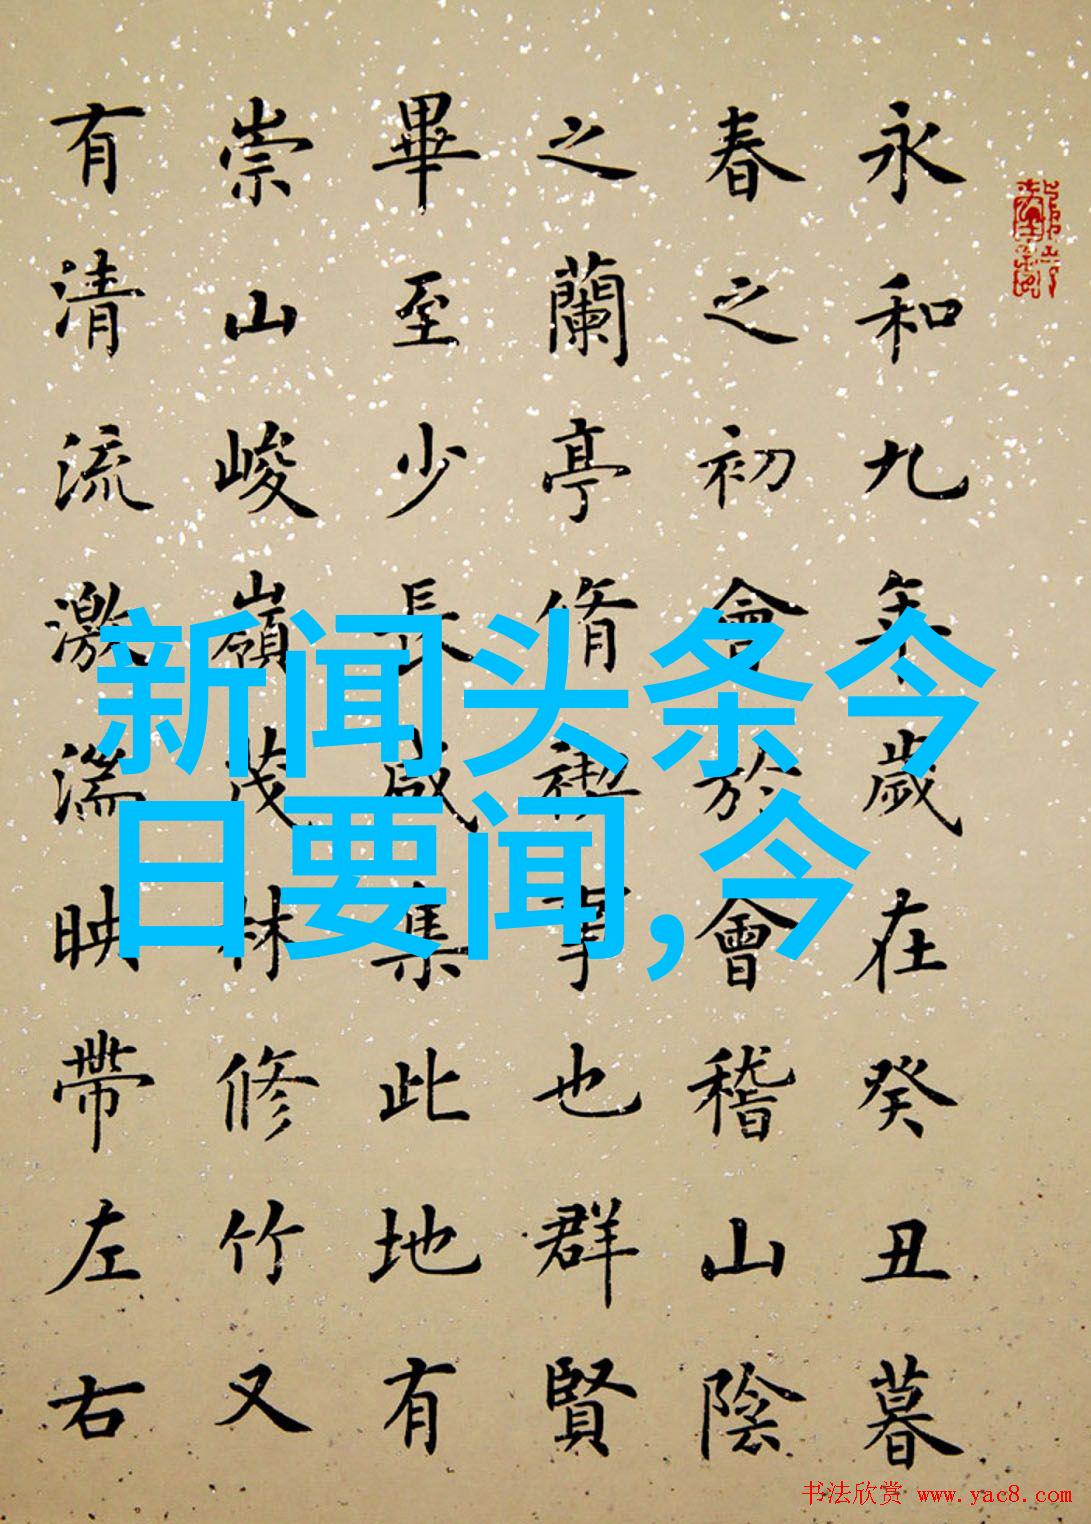 永和九年歲在癸丑暮
春之初會於會稽山陰
之蘭亭脩禊事也群賢
畢至少長咸集此地有
崇山峻嶺茂林修竹又
有清流激湍映帶左右
新闻头条今
日要闻,今
书法欣赏 www.yac8.com